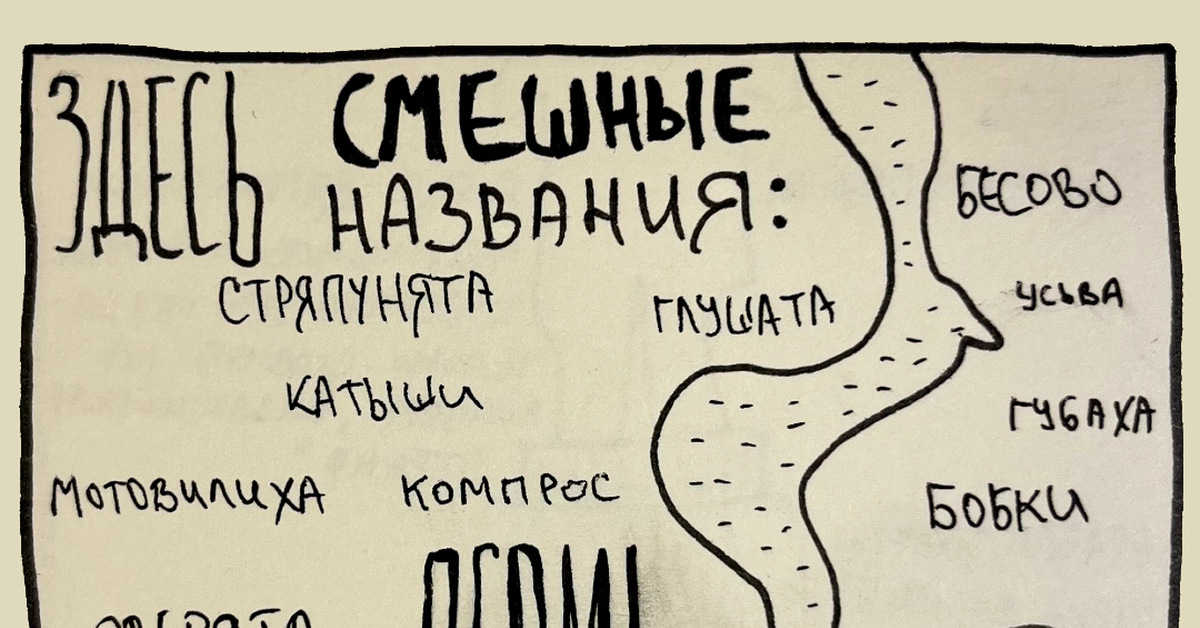 ЗДЕСЬ СМЕШНЫЕ
НАЗВАНИЯ:
БЕСОВО
СТРЯПУНЯТА
ГЛУШАТА
УСЬВА
КАТЫШИ
ГУБАХА
МОТОВИЛИХА
КОМПРОС
БОБКИ